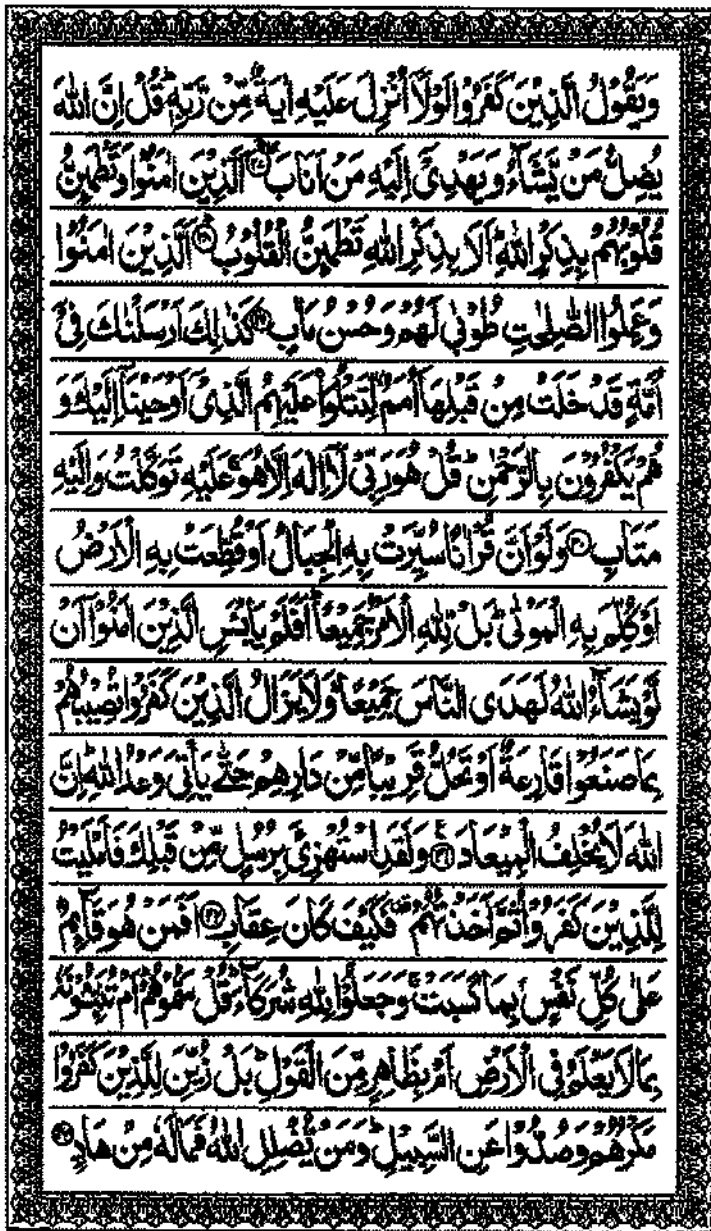 وَيَقُوْلُ الَّذِيْنَ كَفَرُوْا لَوْلَاۤ اُنْزِلَ عَلَيْهِ اٰيَةٌ مِّنْ رَّبِّهٖ ؕ قُلْ اِنَّ اللّٰهَ
يُضِلُّ مَنْ يَّشَآءُ وَيَهْدِىْۤ اِلَيْهِ مَنْ اَنَابَ ۖۚ ﴿۲۷﴾ اَلَّذِيْنَ اٰمَنُوْا وَتَطْمَئِنُّ
قُلُوْبُهُمْ بِذِكْرِ اللّٰهِ ؕ اَلَا بِذِكْرِ اللّٰهِ تَطْمَئِنُّ الْقُلُوْبُ ؕ ﴿۲۸﴾ اَلَّذِيْنَ اٰمَنُوْا
وَعَمِلُوا الصّٰلِحٰتِ طُوْبٰى لَهُمْ وَحُسْنُ مَاٰبٍ ﴿۲۹﴾ كَذٰلِكَ اَرْسَلْنٰكَ فِىْۤ
اُمَّةٍ قَدْ خَلَتْ مِنْ قَبْلِهَاۤ اُمَمٌ لِّتَتْلُوَا۟ عَلَيْهِمُ الَّذِىْۤ اَوْحَيْنَاۤ اِلَيْكَ وَ
هُمْ يَكْفُرُوْنَ بِالرَّحْمٰنِ ؕ قُلْ هُوَ رَبِّىْ لَاۤ اِلٰهَ اِلَّا هُوَ ۚ عَلَيْهِ تَوَكَّلْتُ وَاِلَيْهِ
مَتَابِ ﴿۳۰﴾ وَلَوْ اَنَّ قُرْاٰنًا سُيِّرَتْ بِهِ الْجِبَالُ اَوْ قُطِّعَتْ بِهِ الْاَرْضُ
اَوْ كُلِّمَ بِهِ الْمَوْتٰى ؕ بَلْ لِّلّٰهِ الْاَمْرُ جَمِيْعًا ؕ اَفَلَمْ يَايْـَٔسِ الَّذِيْنَ اٰمَنُوْۤا اَنْ
لَّوْ يَشَآءُ اللّٰهُ لَهَدَى النَّاسَ جَمِيْعًا ؕ وَلَا يَزَالُ الَّذِيْنَ كَفَرُوْا تُصِيْبُهُمْ
بِمَا صَنَعُوْا قَارِعَةٌ اَوْ تَحُلُّ قَرِيْبًا مِّنْ دَارِهِمْ حَتّٰى يَاْتِىَ وَعْدُ اللّٰهِ ؕ اِنَّ
اللّٰهَ لَا يُخْلِفُ الْمِيْعَادَ ﴿۳۱﴾ وَلَقَدِ اسْتُهْزِئَ بِرُسُلٍ مِّنْ قَبْلِكَ فَاَمْلَيْتُ
لِلَّذِيْنَ كَفَرُوْا ثُمَّ اَخَذْتُهُمْ فَكَيْفَ كَانَ عِقَابِ ﴿۳۲﴾ اَفَمَنْ هُوَ قَآئِمٌ
عَلٰى كُلِّ نَفْسٍۭ بِمَا كَسَبَتْ ۚ وَجَعَلُوْا لِلّٰهِ شُرَكَآءَ ؕ قُلْ سَمُّوْهُمْ ؕ اَمْ تُنَبِّـُٔوْنَهٗ
بِمَا لَا يَعْلَمُ فِى الْاَرْضِ اَمْ بِظَاهِرٍ مِّنَ الْقَوْلِ ؕ بَلْ زُيِّنَ لِلَّذِيْنَ كَفَرُوْا
مَكْرُهُمْ وَصُدُّوْا عَنِ السَّبِيْلِ ؕ وَمَنْ يُّضْلِلِ اللّٰهُ فَمَا لَهٗ مِنْ هَادٍ ﴿۳۳﴾